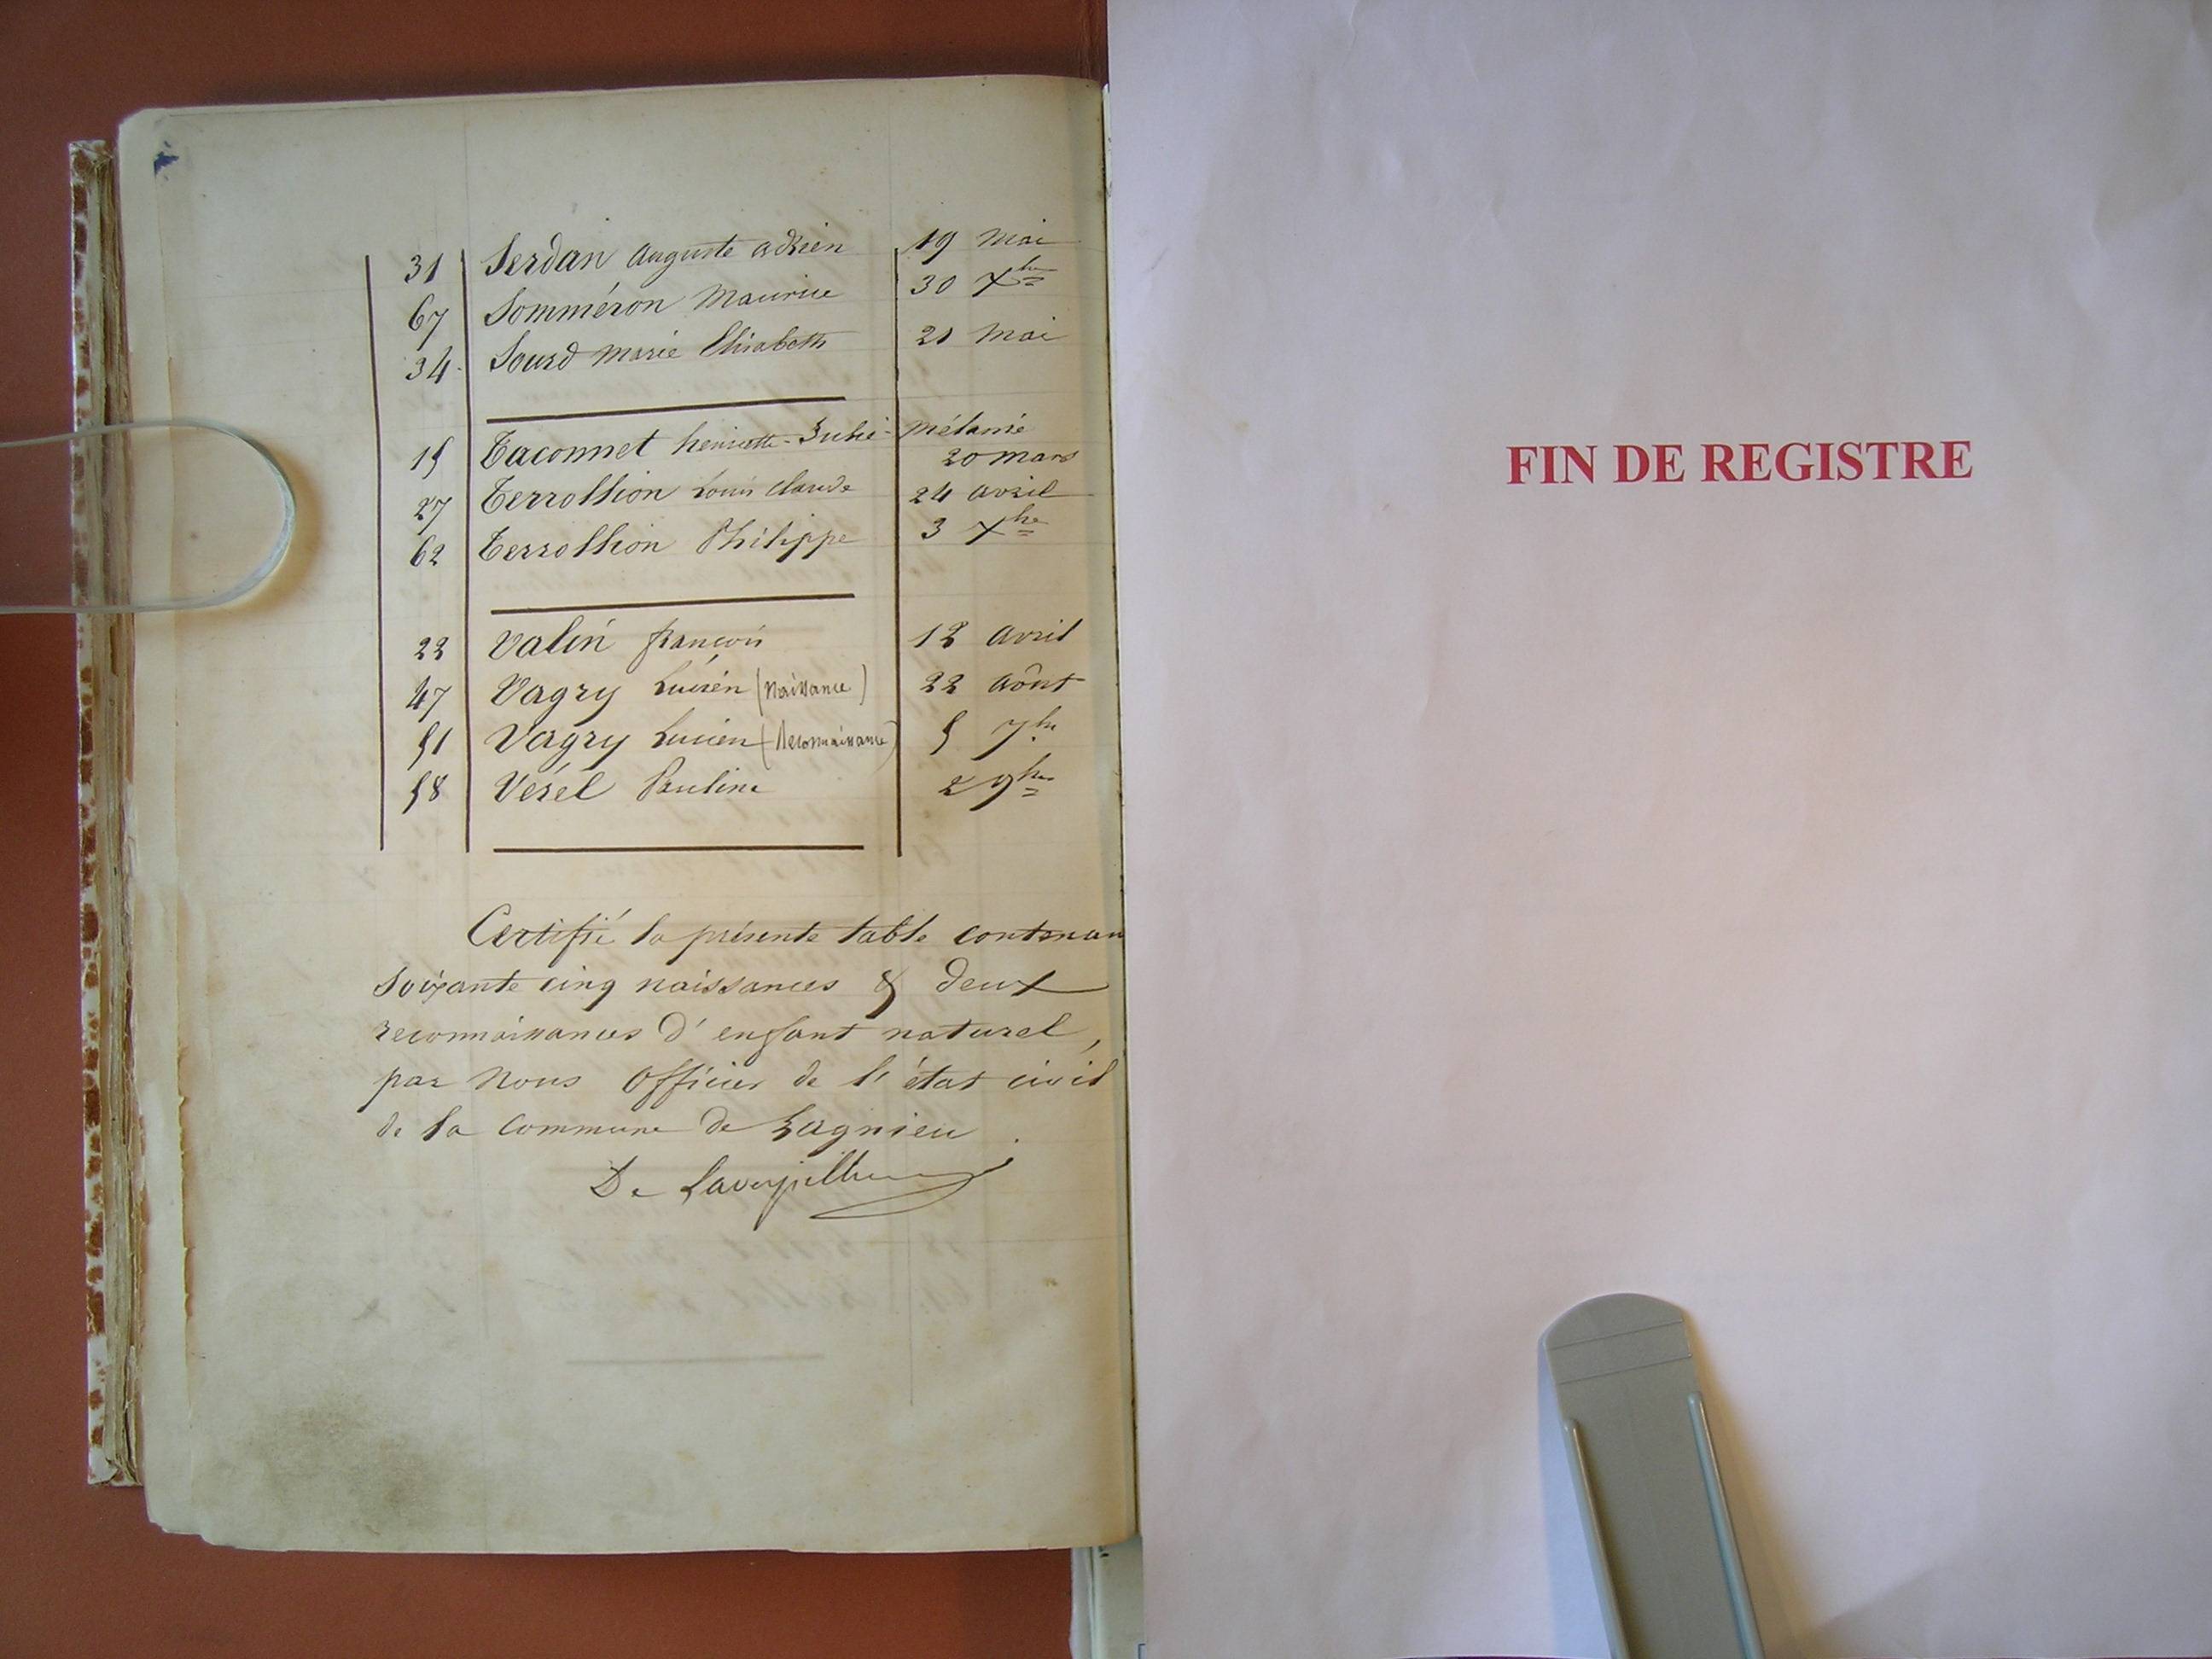 31 Serdan Auguste Adrien 19 Mai
67 Somméron Maurice 30 Xbre
34 Sourd Marie Elisabeth 21 Mai
15 Taconnet henriette-Julie-Mélanie
20 mars
27 Terrollion Louis Claude 24 avril
62 Terrollion Philippe 3 Xbre
22 Valin françois 12 Avril
47 Vagry Lucien (Naissance) 22 Août
51 Vagry Lucien (Reconnaissance) 5 7bre
58 Vésel Pauline 2 9bre
Certifié la présente table contenan
soixante cinq naissances & deux
reconnaissances d'enfant naturel,
par Nous Officier de l'état civil
de la commune de Lagnieu.
De Laverpillière
FIN DE REGISTRE